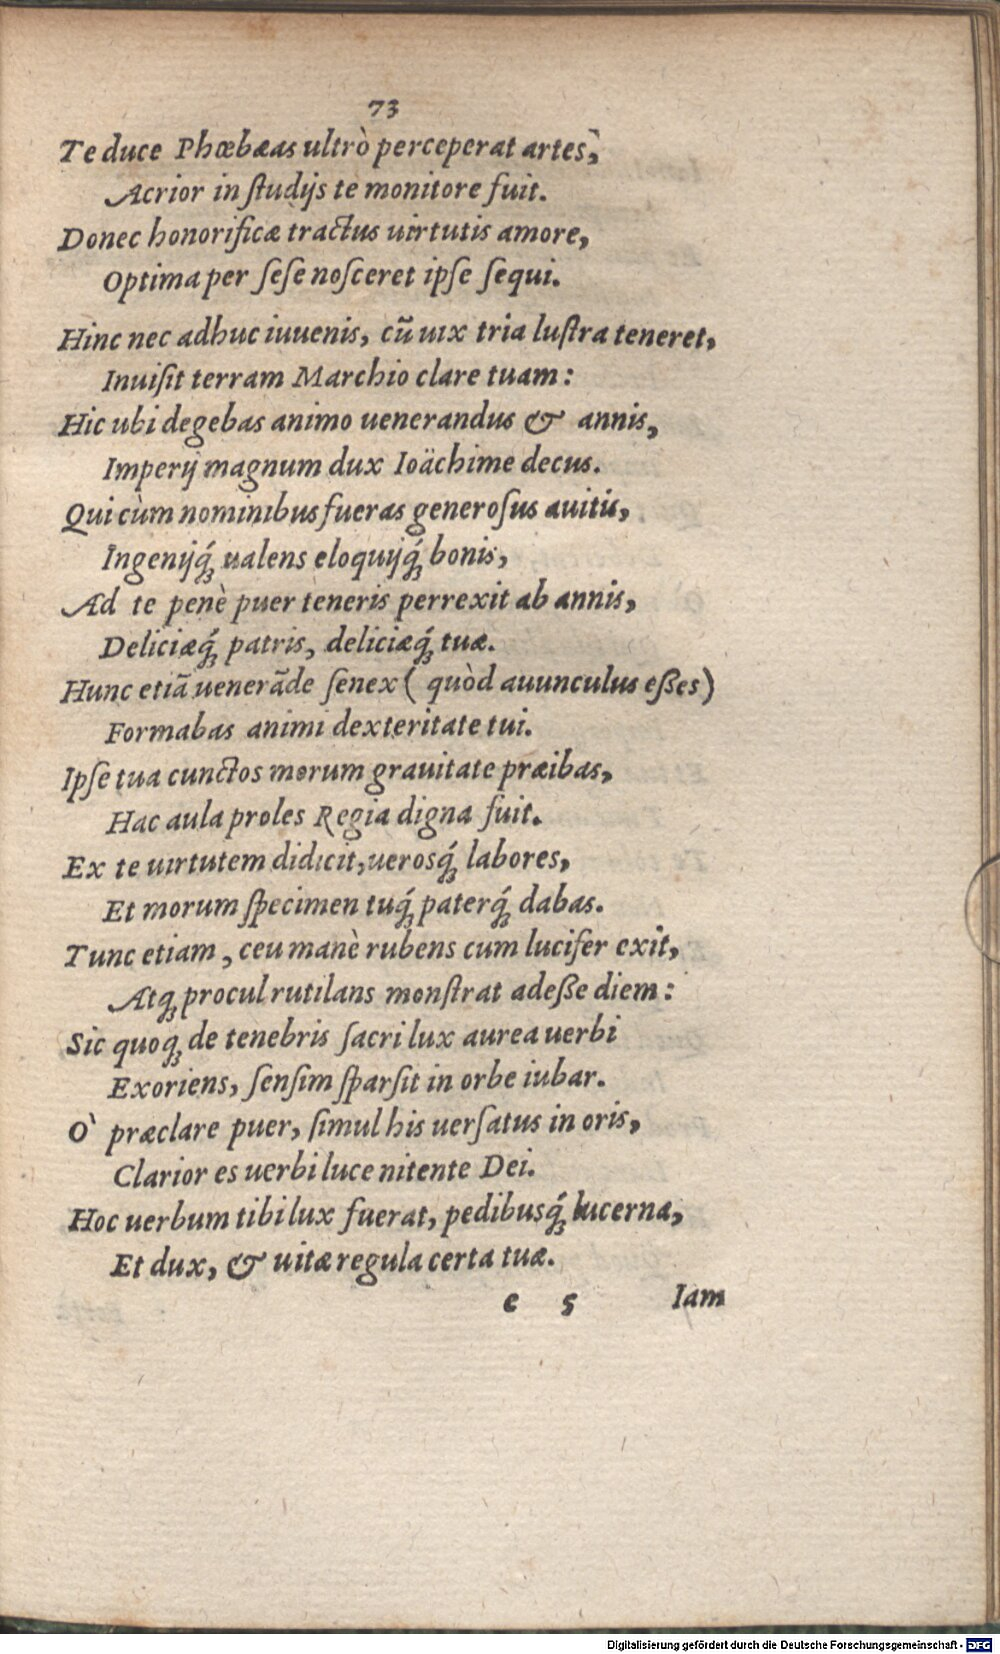 73
Te duce Phœbæas ultrò perceperat artes,
Acrior in ſtudijs te monitore fuit.
Donec honorificæ tractus uirtutis amore,
Optima per ſeſe noſceret ipſe ſequi.
Hinc nec adhuc iuuenis, cũ uix tria luſtra teneret,
Inuiſit terram Marchio clare tuam:
Hic ubi degebas animo uenerandus & annis,
Imperij magnum dux Ioächime decus.
Qui cùm nominibus fueras generoſus auitis,
Ingenijq́ꝫ ualens eloquijq́ꝫ bonis,
Ad te penè puer teneris perrexit ab annis,
Deliciæq́ꝫ patris, deliciæq́ꝫ tuæ.
Hunc etiã uenerãde ſenex ( quòd auunculus eßes)
Formabas animi dexteritate tui.
Ipſe tua cunctos morum grauitate præibas,
Hac aula proles Regia digna fuit.
Ex te uirtutem didicit, uerosq́ꝫ labores,
Et morum ſpecimen tuq́ꝫ paterq́ꝫ dabas.
Tunc etiam, ceu manè rubens cum lucifer exit,
Atqꝫ procul rutilans monſtrat adeße diem:
Sic quoqꝫ de tenebris ſacri lux aurea uerbi
Exoriens, ſenſim ſparſit in orbe iubar.
Ò præclare puer, ſimul his uerſatus in oris,
Clarior es uerbi luce nitente Dei.
Hoc uerbum tibi lux fuerat, pedibusq́ꝫ lucerna,
Et dux, & uitæ regula certa tuæ.
e 5 Iam
Digitalisierung gefördert durch die Deutsche Forschungsgemeinschaft - DFG